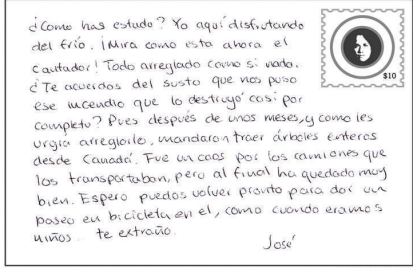 ¿Como has estado? Yo aquí disfrutando
del frío. ¡Mira como esta ahora el
cautador! Todo arreglado como si nada.
¿Te acuerdas del susto que nos puso
ese incendio que lo destruyó casi por
completo? Pues después de unos meses, y como les
urgía arreglarlo, mandaron traer árboles enteros
desde Canadá. Fue un caos por los camiones que
los transportaban, pero al final ha quedado muy
bien. Espero puedas volver pronto para dar un
paseo en bicicleta en el, como cuando eramos
niños. te extraño.
José
$10